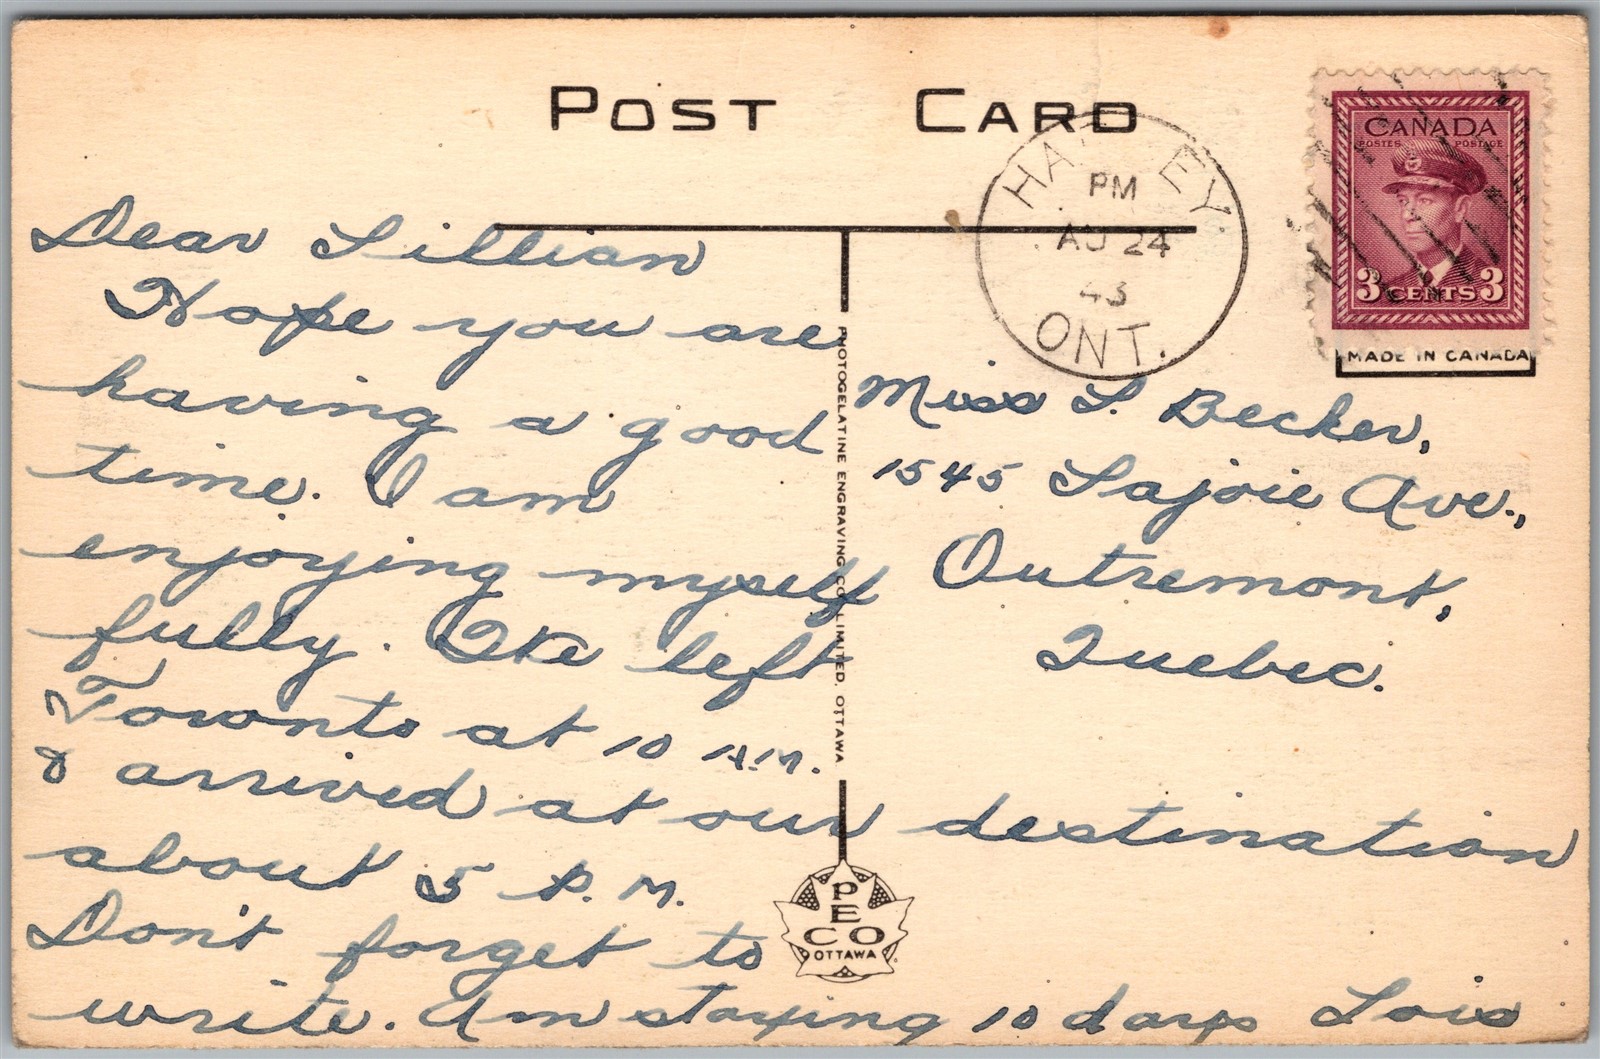 POST CARD
CANADA
POSTES POSTAGE
3 CENTS 3
MADE IN CANADA
PM
AU 24
43
ONT.
Dear Lillian
Hope you are
having a good
time. I am
enjoying myself
fully. We left
Toronto at 10 A.M.
& arrived at our destination
about 5 P.M.
Don't forget to
write. Am staying 10 days Lois
PHOTOGELATINE ENGRAVING CO. LIMITED. OTTAWA
PECO
OTTAWA
Miss L. Becker,
1545 Lajoie Ave.,
Outremont,
Quebec.